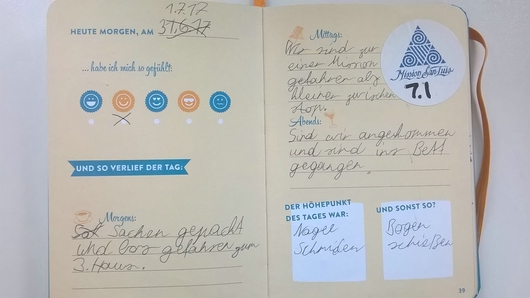 1.7.17
HEUTE MORGEN, AM 31.6.17
... habe ich mich so gefühlt:
UND SO VERLIEF DER TAG:
Morgens:
Sachen gepackt
und los gefahren zum
3. Haus.
Mittags:
Wir sind zur
einer Mission
gefahren als
kleiner zwischen
Stop.
Abends:
Sind wir angekommen
und sind ins Bett
gegangen.
Mission San Luis
7.1
DER HÖHEPUNKT
DES TAGES WAR:
Nagel
Schmieden
UND SONST SO?
Bogen
schießen
39